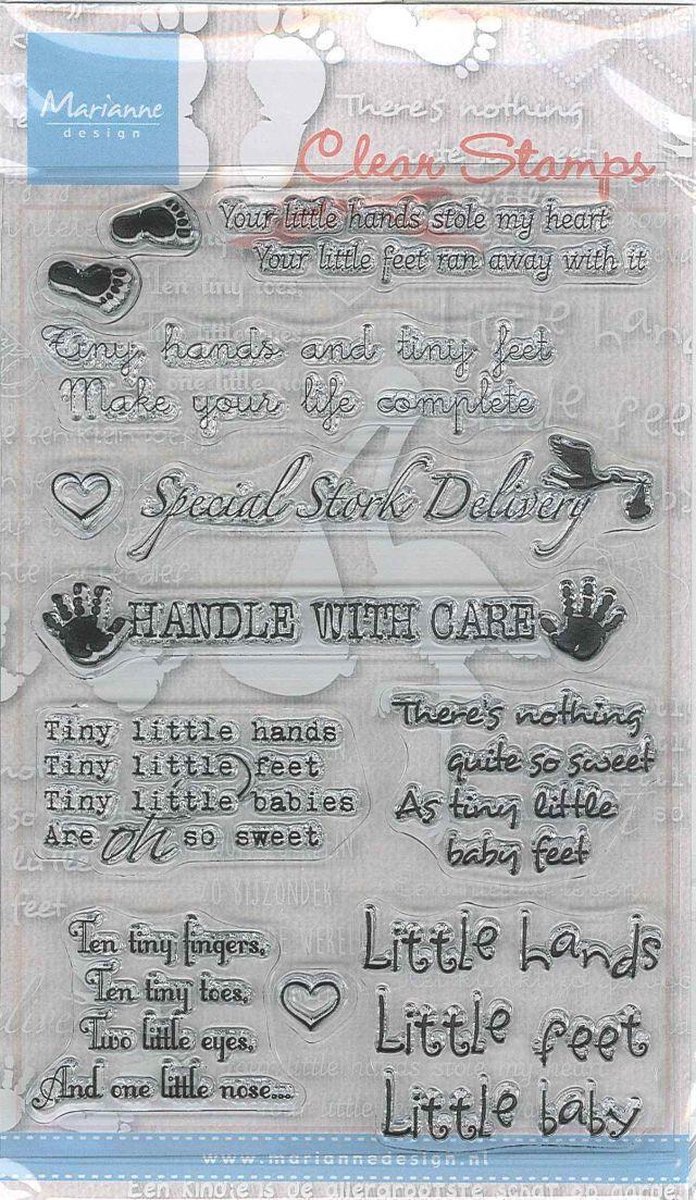 Marianne
design
There's nothing
Clear Stamps
Your little hands stole my heart
Your little feet ran away with it
Tiny hands and tiny feet
Make your life complete
Special Stork Delivery
HANDLE WITH CARE
Tiny little hands
Tiny little feet
Tiny little babies
Are oh so sweet
There's nothing
quite so sweet
As tiny little
baby feet
ZO BIJZONDER
Ten tiny fingers,
Ten tiny toes,
Two little eyes,
And one little nose...
Little hands
Little feet
Little baby
www.mariannedesign.nl